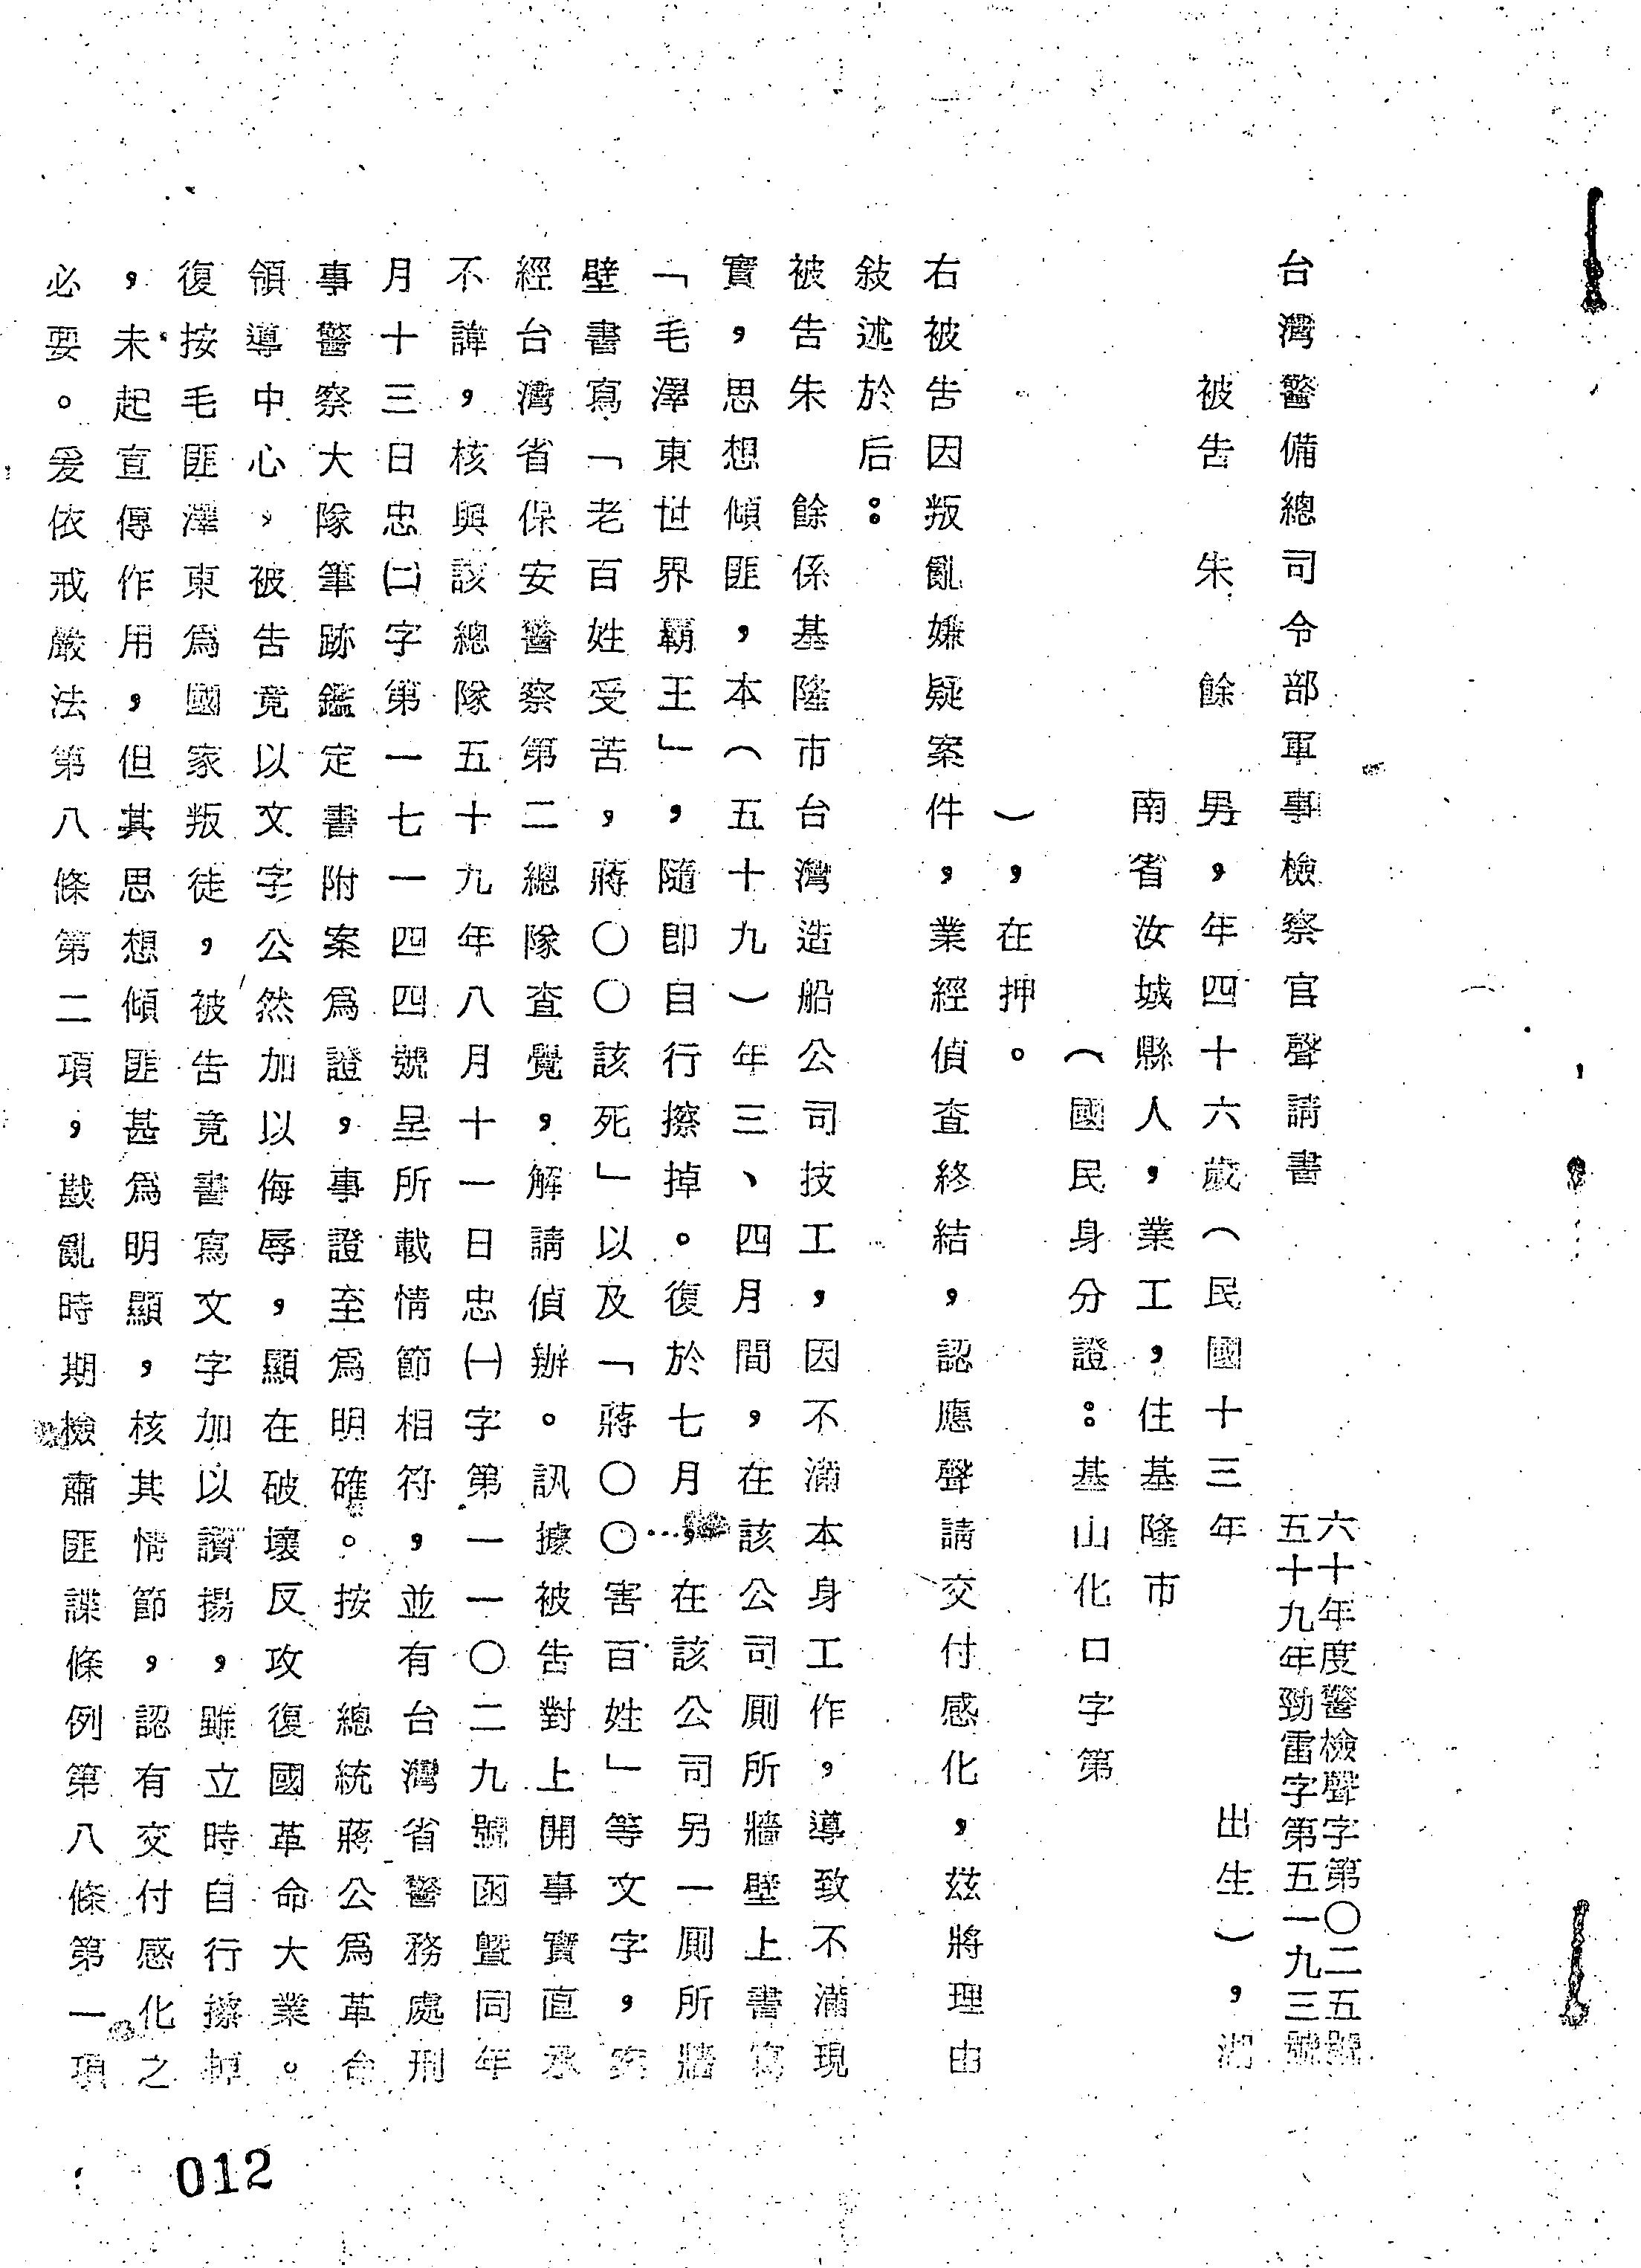 台灣警備總司令部軍事檢察官聲請書
六十年度警檢聲字第〇二五號
五十九年勁雷字第五一九三號
被告 朱 餘 男，年四十六歲（民國十三年 出生），湖
南省汝城縣人，業工，住基隆市
（國民身分證：基山化口字第
），在押。
右被告因叛亂嫌疑案件，業經偵查終結，認應聲請交付感化，茲將理由
敍述於后：
被告朱 餘係基隆市台灣造船公司技工，因不滿本身工作，導致不滿現
實，思想傾匪，本（五十九）年三、四月間，在該公司厠所牆壁上書寫
「毛澤東世界霸王」，隨卽自行擦掉。復於七月，在該公司另一厠所牆
壁書寫「老百姓受苦，蔣〇〇〇該死」以及「蔣〇〇害百姓」等文字，案
經台灣省保安警察第二總隊查覺，解請偵辦。訊據被告對上開事實直承
不諱，核與該總隊五十九年八月十一日忠㈠字第一一〇二九號函曁同年
月十三日忠㈡字第一七一四四號呈所載情節相符，並有台灣省警務處刑
事警察大隊筆跡鑑定書附案爲證，事證至爲明確。按 總統蔣公爲革命
領導中心，被告竟以文字公然加以侮辱，顯在破壞反攻復國革命大業。
復按毛匪澤東爲國家叛徒，被告竟書寫文字加以讚揚，雖立時自行擦掉
，未起宣傳作用，但其思想傾匪甚爲明顯，核其情節，認有交付感化之
必要。爰依戒嚴法第八條第二項，戡亂時期檢肅匪諜條例第八條第一項
012